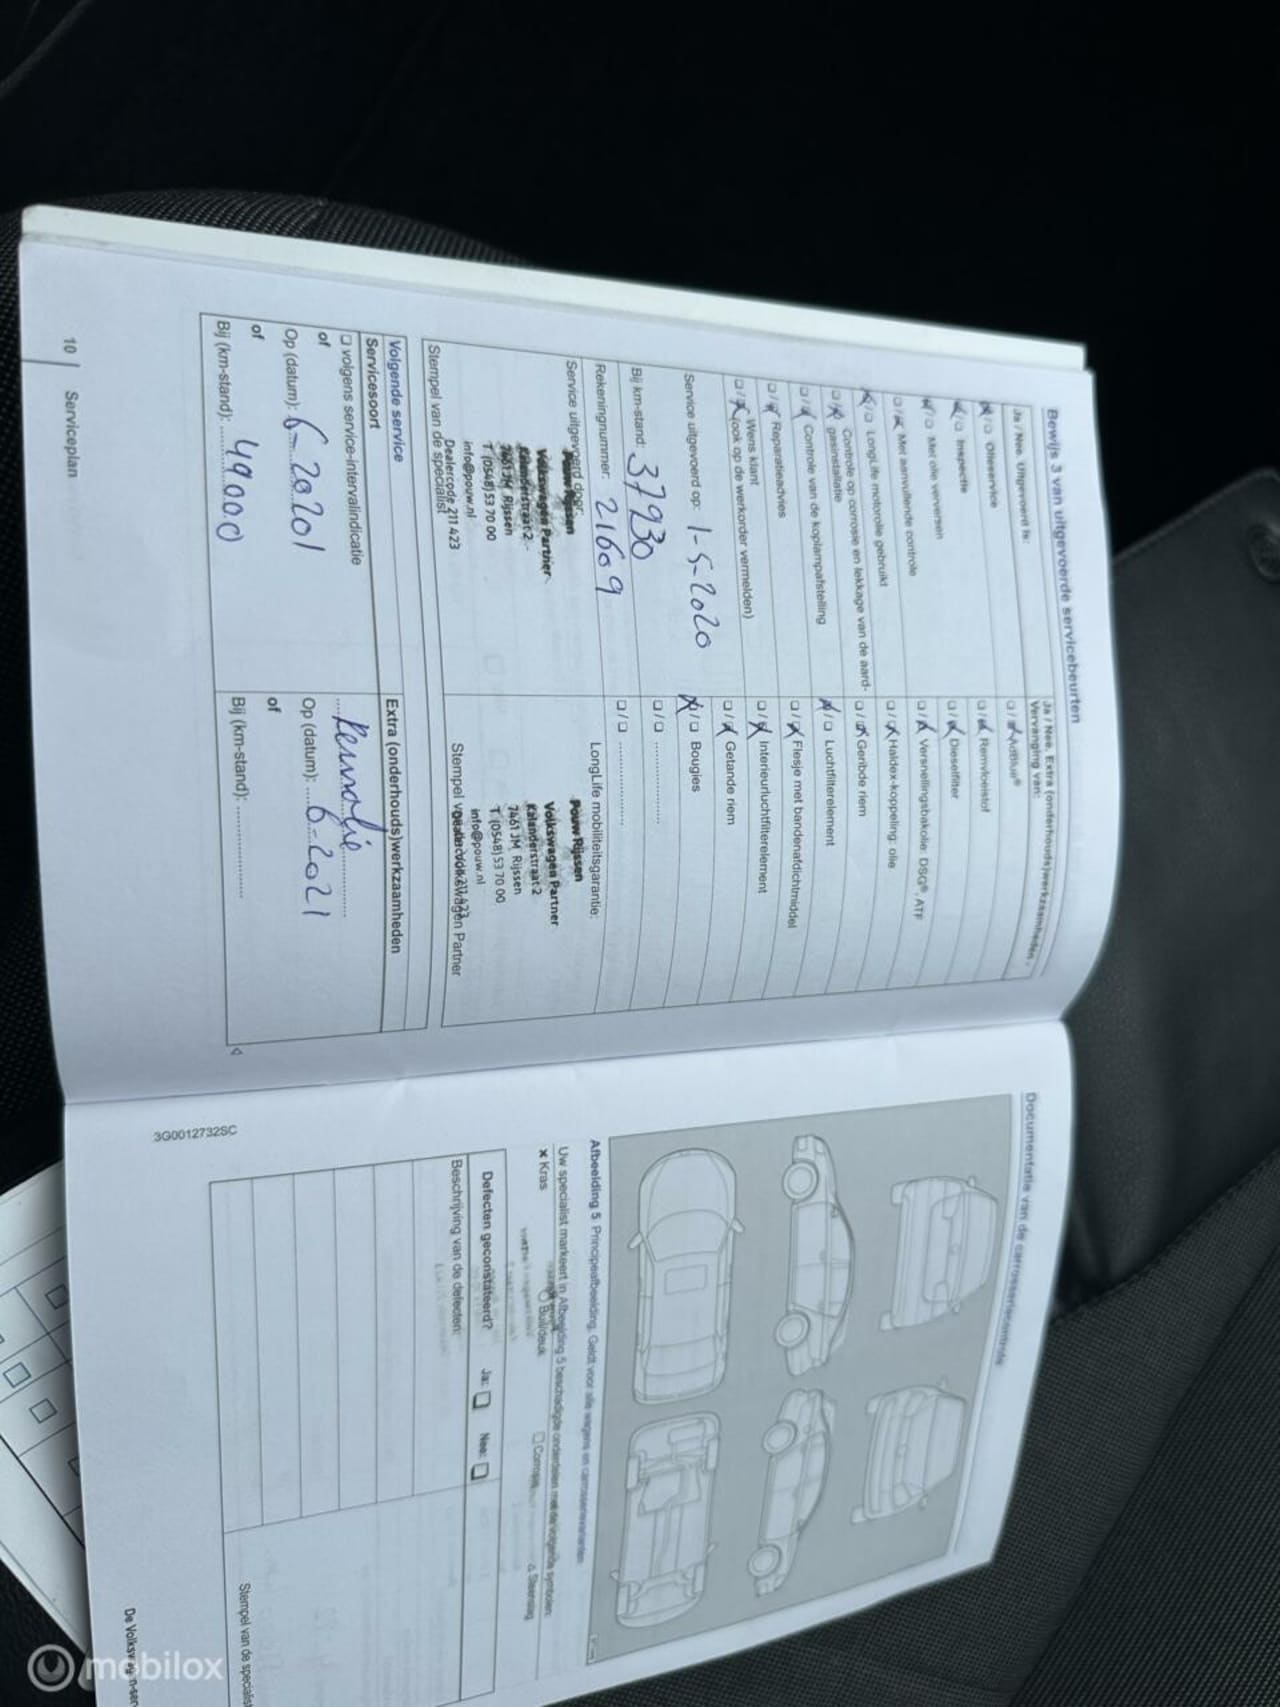 Bewijs 3 van uitgevoerde servicebeurten
Ja / Nee. Uitgevoerd is:
Olieservice
Inspectie
Met olie verversen
Met aanvullende controle
LongLife motorolie gebruikt
Controle op corrosie en lekkage van de aard-
gasinstallatie
Controle van de koplampafstelling
Reparatieadvies
Wens klant
(ook op de werkorder vermelden)
Service uitgevoerd op: 1-5-2020
Bij km-stand: 37930
Rekeningnummer: 21609
Service uitgevoerd door:
Pouw Rijssen
Volkswagen Partner
Kalanderstraat 2
7461 JM Rijssen
T (0548) 53 70 00
info@pouw.nl
Dealercode 211 423
Stempel van de specialist
Ja / Nee. Extra (onderhouds)werkzaamheden -
Vervanging van:
AdBlue®
Remvloeistof
Dieselfilter
Versnellingsbakolie: DSG®, ATF
Haldex-koppeling: olie
Geribde riem
Luchtfilterelement
Flesje met bandenafdichtmiddel
Interieurluchtfilterelement
Getande riem
Bougies
LongLife mobiliteitsgarantie:
Pouw Rijssen
Volkswagen Partner
Kalanderstraat 2
7461 JM Rijssen
T (0548) 53 70 00
info@pouw.nl
Dealercode 211 423
Stempel van de Volkswagen Partner
Volgende service
Servicesoort
volgens service-intervalindicatie
of
Op (datum): 6-2021
of
Bij (km-stand): 49000
Extra (onderhouds)werkzaamheden
Remolie
Op (datum): 6-2021
of
Bij (km-stand):
10 Serviceplan
Documentatie van de carrosseriecontrole
Afbeelding 5 Principeafbeelding. Geldt voor alle wagens en carrosserievarianten
Uw specialist markeert in Afbeelding 5 beschadigde onderdelen met de volgende symbolen:
Kras
Buil/deuk
Corrosie
Steenslag
Defecten geconstateerd? Ja: Nee:
Beschrijving van de defecten:
Stempel van de specialist
3G0012732SC
mobilox